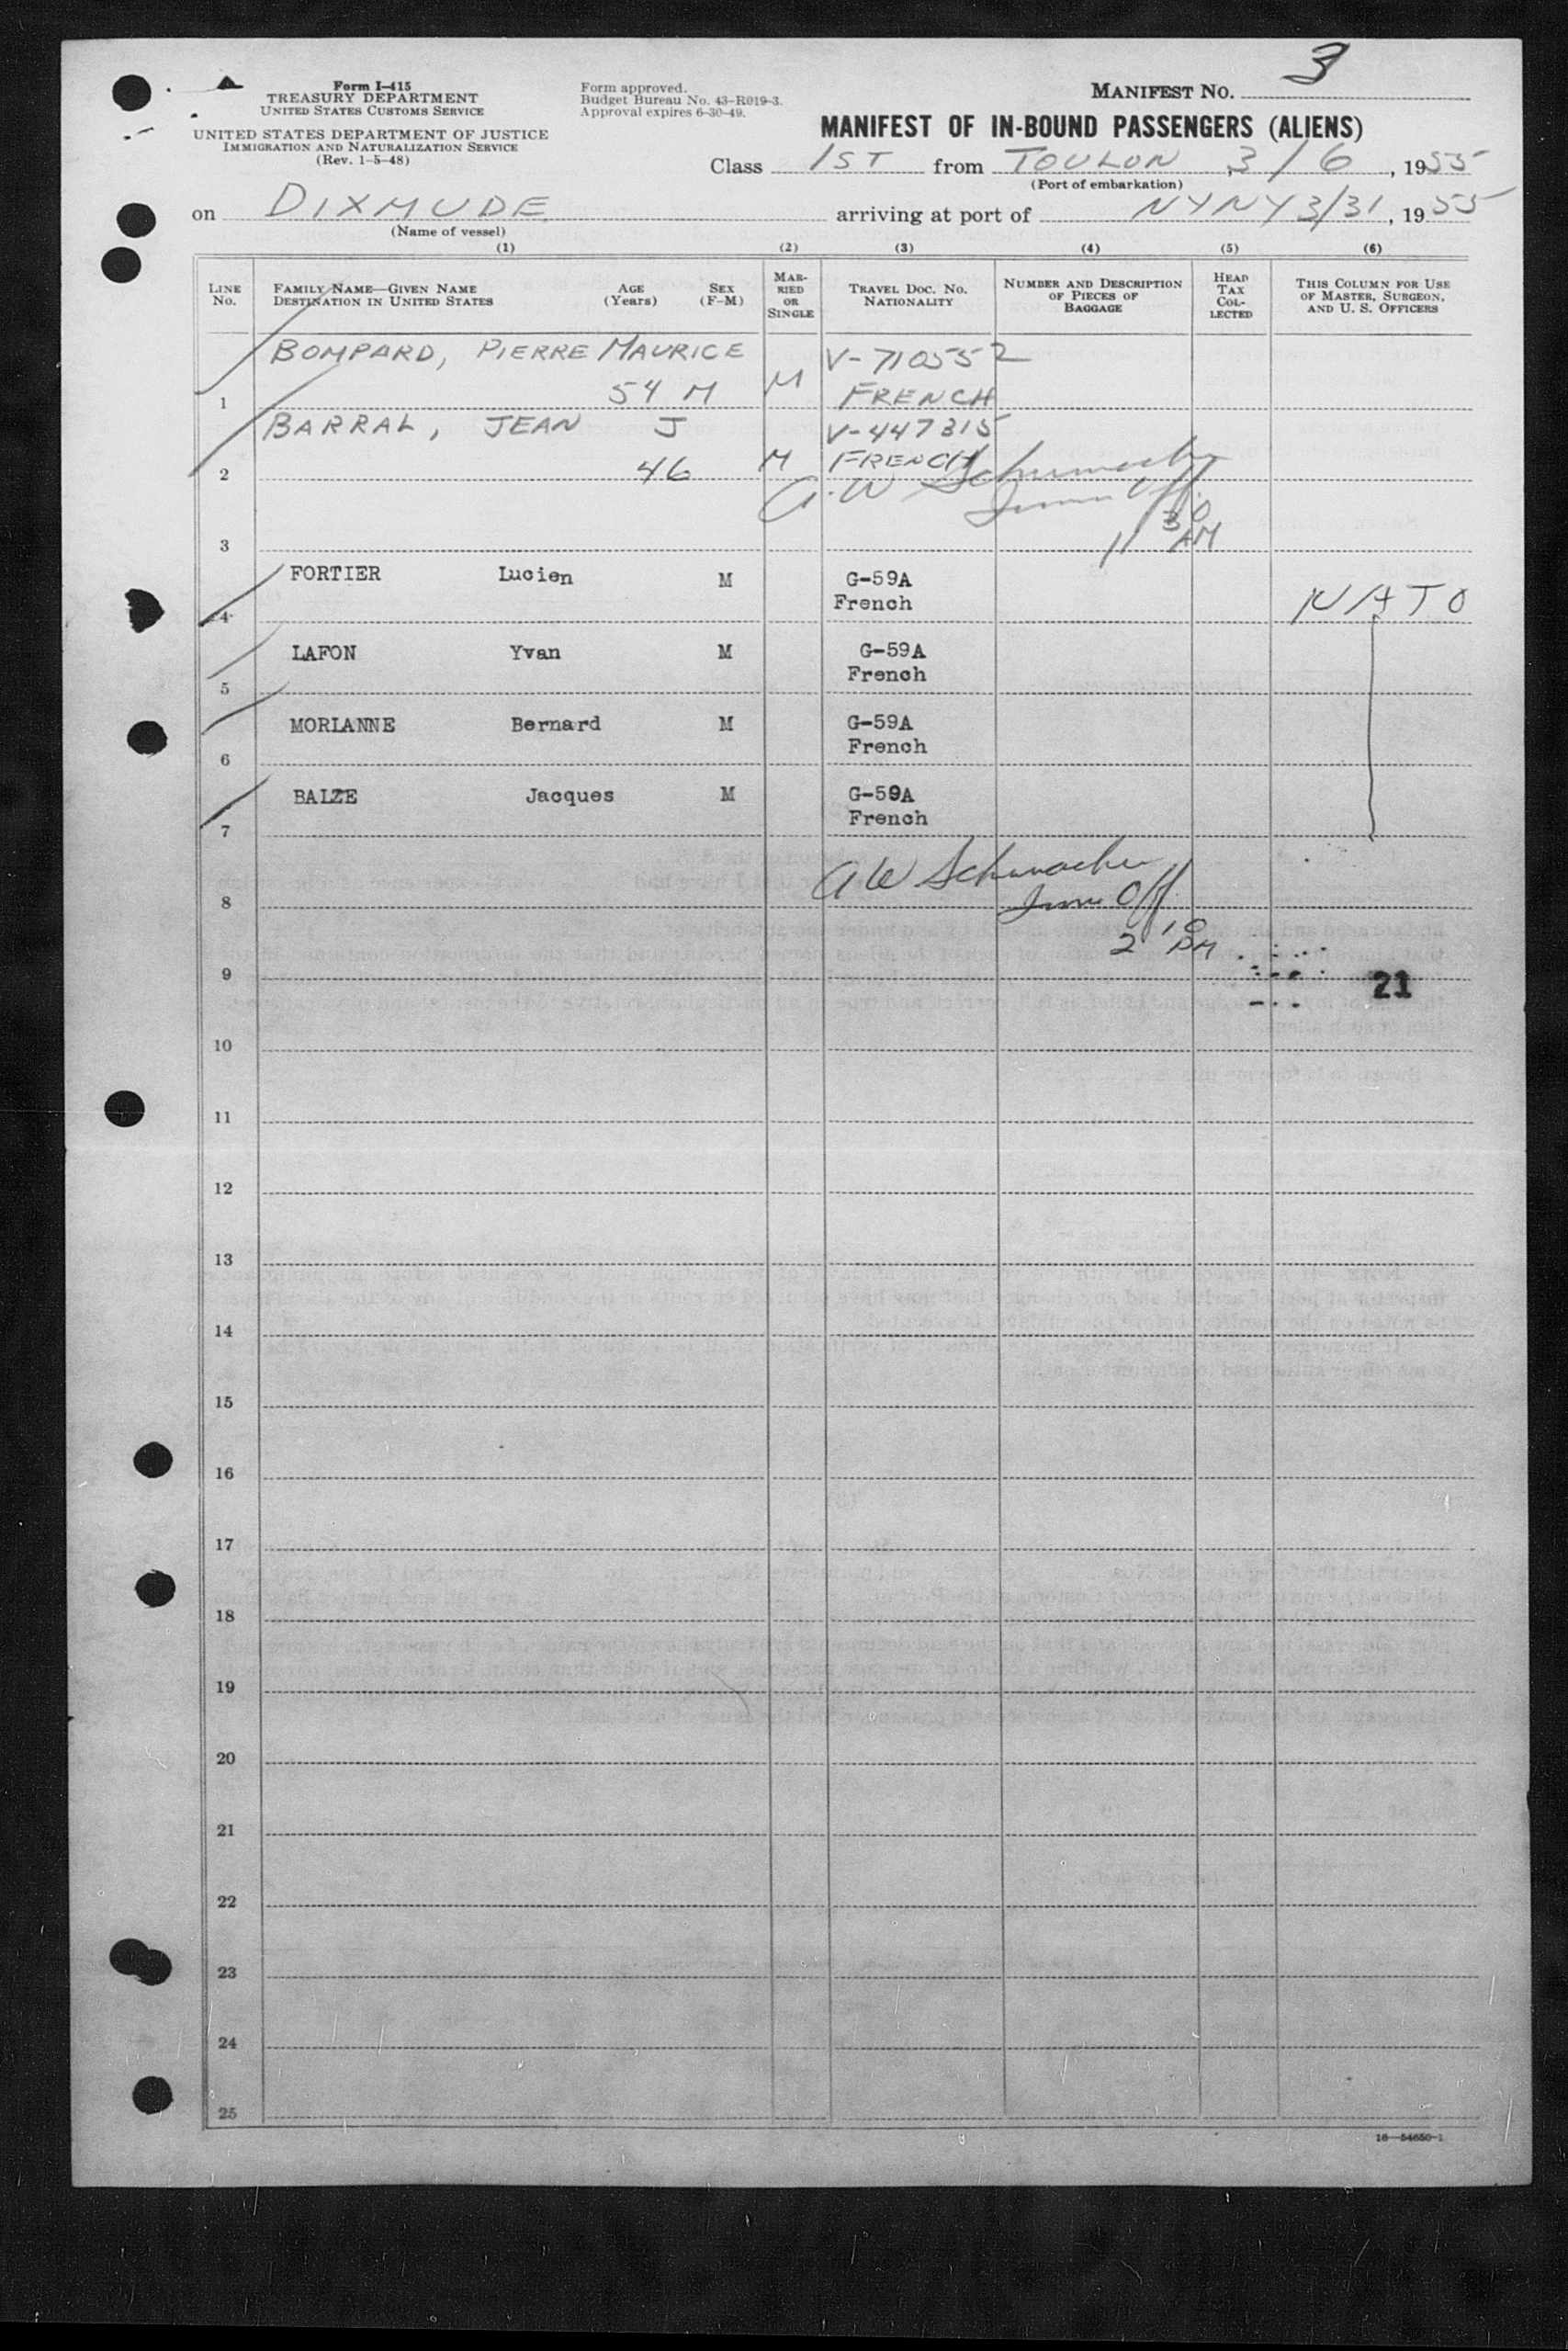 3
Form I-415
TREASURY DEPARTMENT
UNITED STATES CUSTOMS SERVICE
UNITED STATES DEPARTMENT OF JUSTICE
IMMIGRATION AND NATURALIZATION SERVICE
(Rev. 1-5-48)
Form approved.
Budget Bureau No. 43-R019-3.
Approval expires 6-30-49.
MANIFEST NO.
MANIFEST OF IN-BOUND PASSENGERS (ALIENS)
Class 1ST from TOULON 3/6, 1955
(Port of embarkation)
on DIXMUDE arriving at port of NYNY 3/31, 1955
(Name of vessel)
(1) (2) (3) (4) (5) (6)
LINE No.
FAMILY NAME—GIVEN NAME DESTINATION IN UNITED STATES
AGE (Years)
SEX (F-M)
MARRIED OR SINGLE
TRAVEL DOC. NO. NATIONALITY
NUMBER AND DESCRIPTION OF PIECES OF BAGGAGE
HEAD TAX COLLECTED
THIS COLUMN FOR USE OF MASTER, SURGEON, AND U. S. OFFICERS
BOMPARD, PIERRE MAURICE V-710552
1 54 M M FRENCH
BARRAL, JEAN J V-447315
2 46 M FRENCH
A.W Schumacher
Imm Off
11 30 AM
3
FORTIER Lucien M G-59A
4 French NATO
LAFON Yvan M G-59A
5 French
MORIANNE Bernard M G-59A
6 French
BALZE Jacques M G-59A
7 French
AW Schumacher
8 Imm Off
2 10 PM
9
21
10
11
12
13
14
15
16
17
18
19
20
21
22
23
24
25
16—54650-1